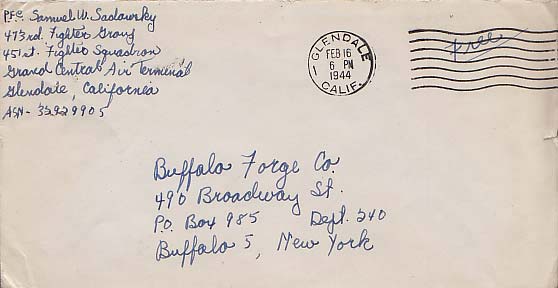 P.F.C. Samuel W. Sadowsky
473rd. Fighter Group
451st. Fighter Squadron
Grand Central Air Terminal
Glendale, California
ASN - 32929905
GLENDALE
1
FEB 16
6 PM
1944
CALIF.
free
Buffalo Forge Co.
490 Broadway St.
P.O. Box 985 Dept. 240
Buffalo 5, New York